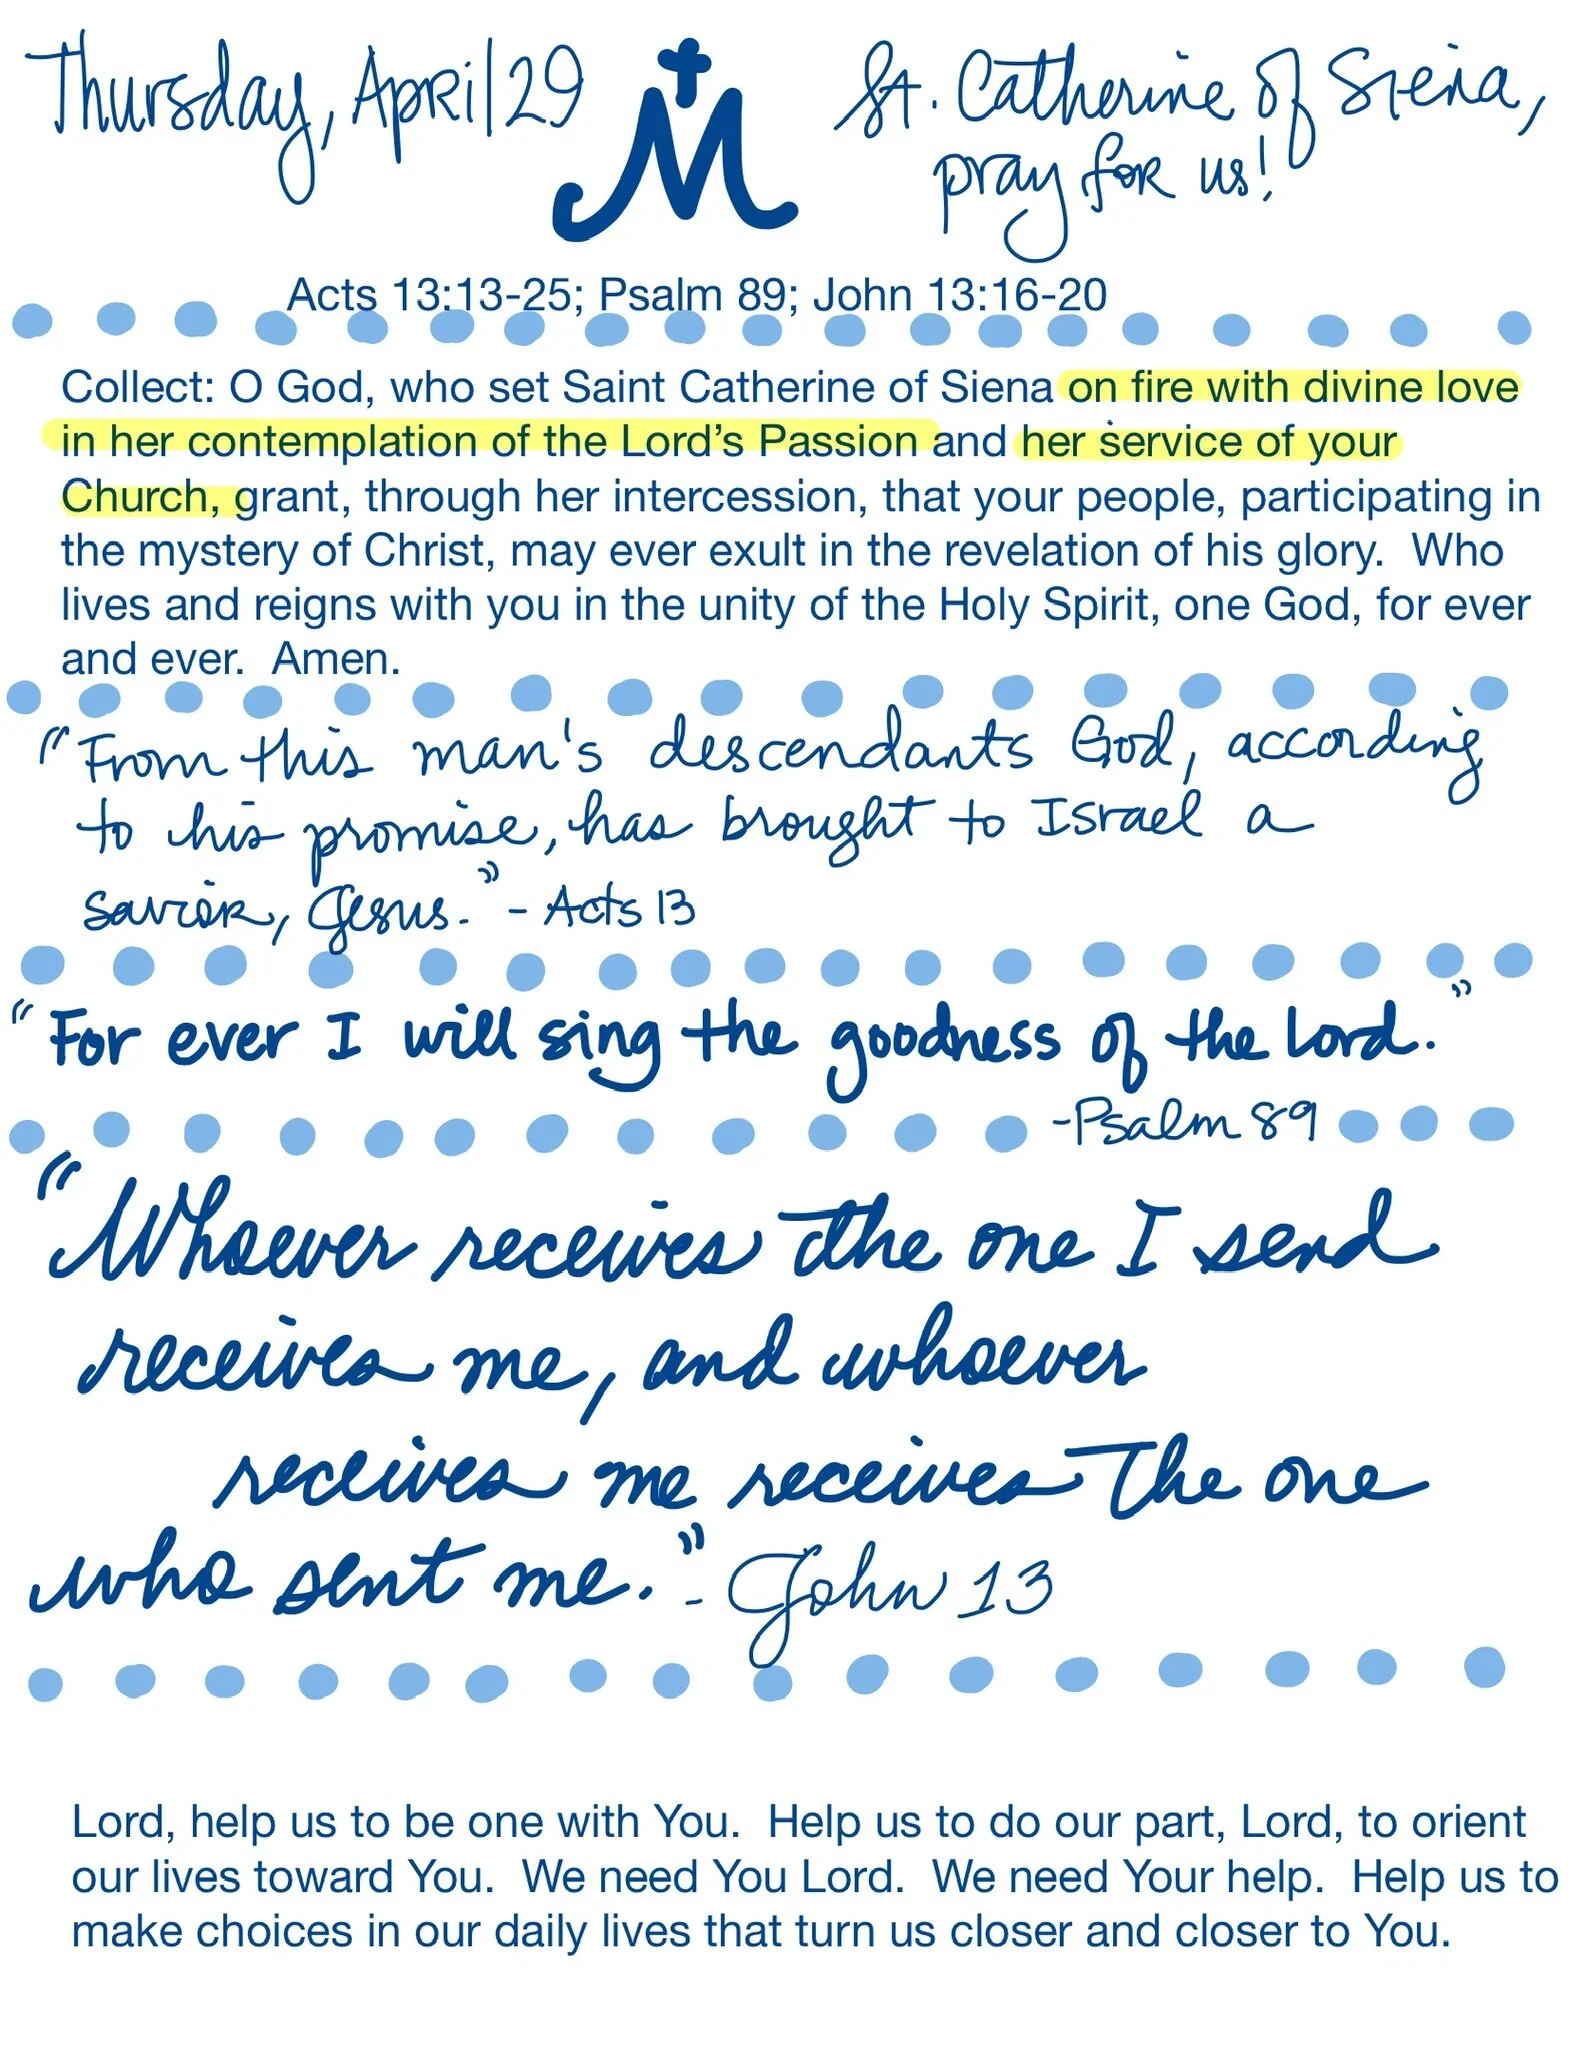 Thursday, April 29
M
St. Catherine of Siena,
pray for us!
Acts 13:13-25; Psalm 89; John 13:16-20
Collect: O God, who set Saint Catherine of Siena on fire with divine love
in her contemplation of the Lord’s Passion and her service of your
Church, grant, through her intercession, that your people, participating in
the mystery of Christ, may ever exult in the revelation of his glory.  Who
lives and reigns with you in the unity of the Holy Spirit, one God, for ever
and ever.  Amen.
"From this man's descendants God, according
to his promise, has brought to Israel a
savior, Jesus." - Acts 13
"For ever I will sing the goodness of the Lord."
-Psalm 89
"Whoever receives the one I send
receives me, and whoever
receives me receives the one
who sent me." - John 13
Lord, help us to be one with You.  Help us to do our part, Lord, to orient
our lives toward You.  We need You Lord.  We need Your help.  Help us to
make choices in our daily lives that turn us closer and closer to You.